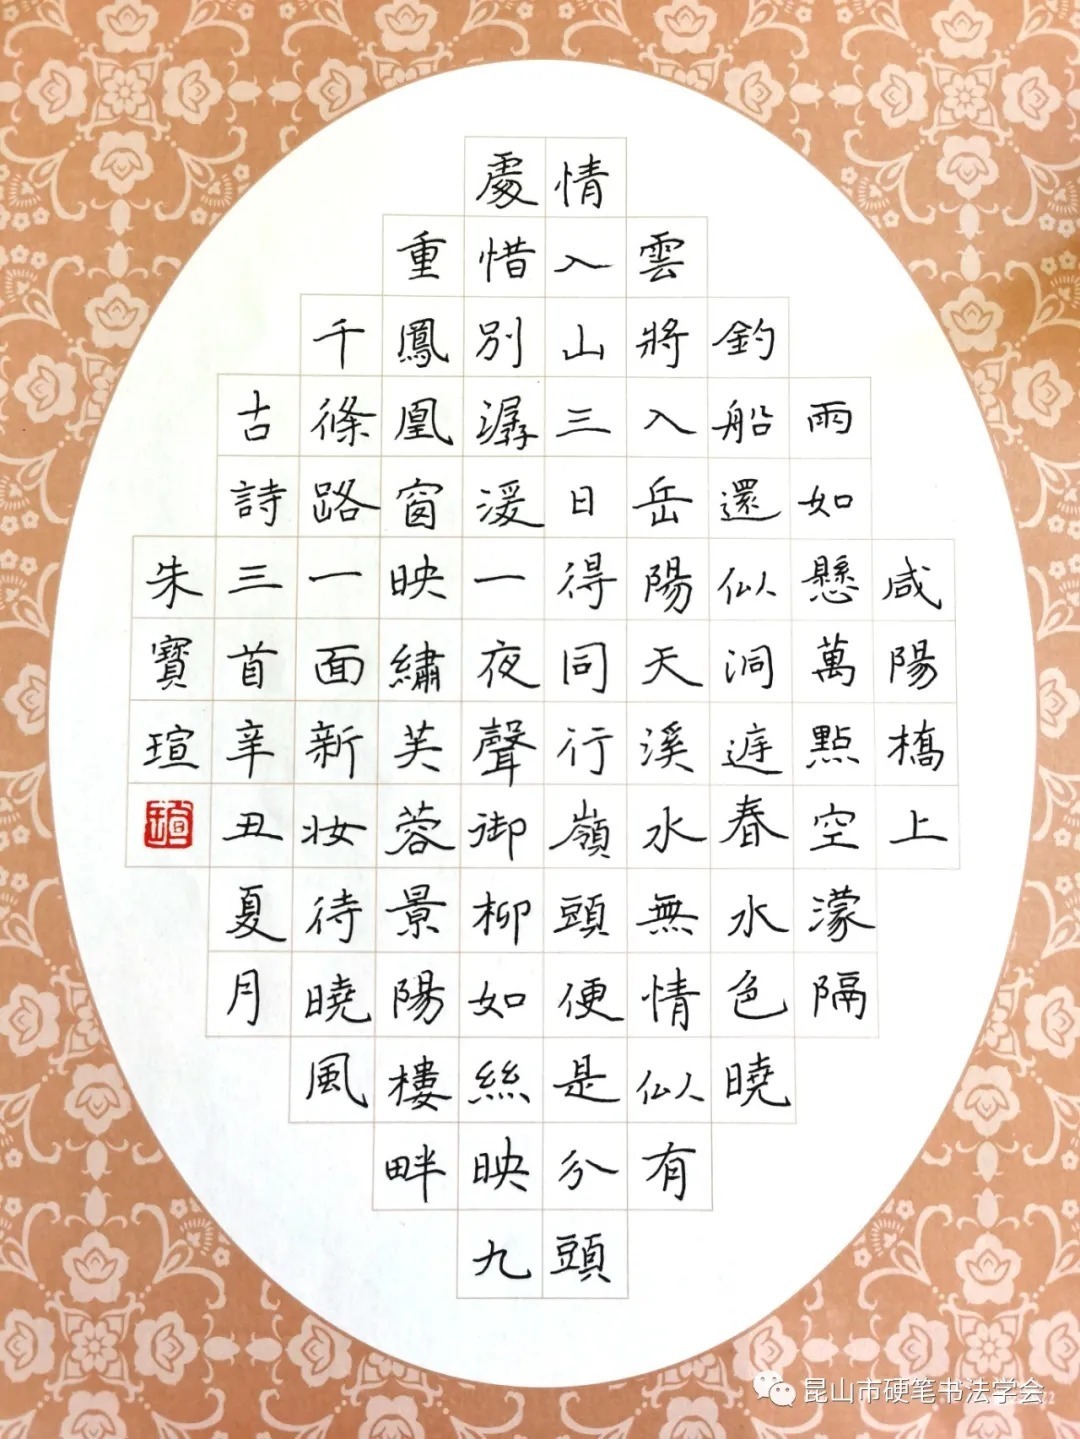 咸陽橋上
雨如懸萬點空濛隔
釣船還似洞庭春水色曉
雲將入岳陽天溪水無情似有
情入山三日得同行嶺頭便是分頭
處惜別潺湲一夜聲御柳如絲映九
重鳳凰窗映繡芙蓉景陽樓畔
千條路一面新妝待曉風
古詩三首辛丑夏月
朱寶瑄
瑄
昆山市硬笔书法学会